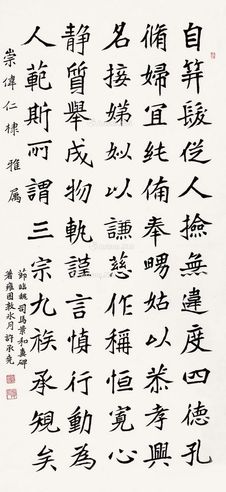 自筓髮従人撿無違度四德孔
脩婦宜純備奉嘒姑以恭孝興
名接娣姒以謙慈作稱恒寬心
静質舉成物軌謹言慎行動為
人範斯所謂三宗九族承規矣
崇偉仁棣雅属
節臨魏司馬景和妻碑
許承堯